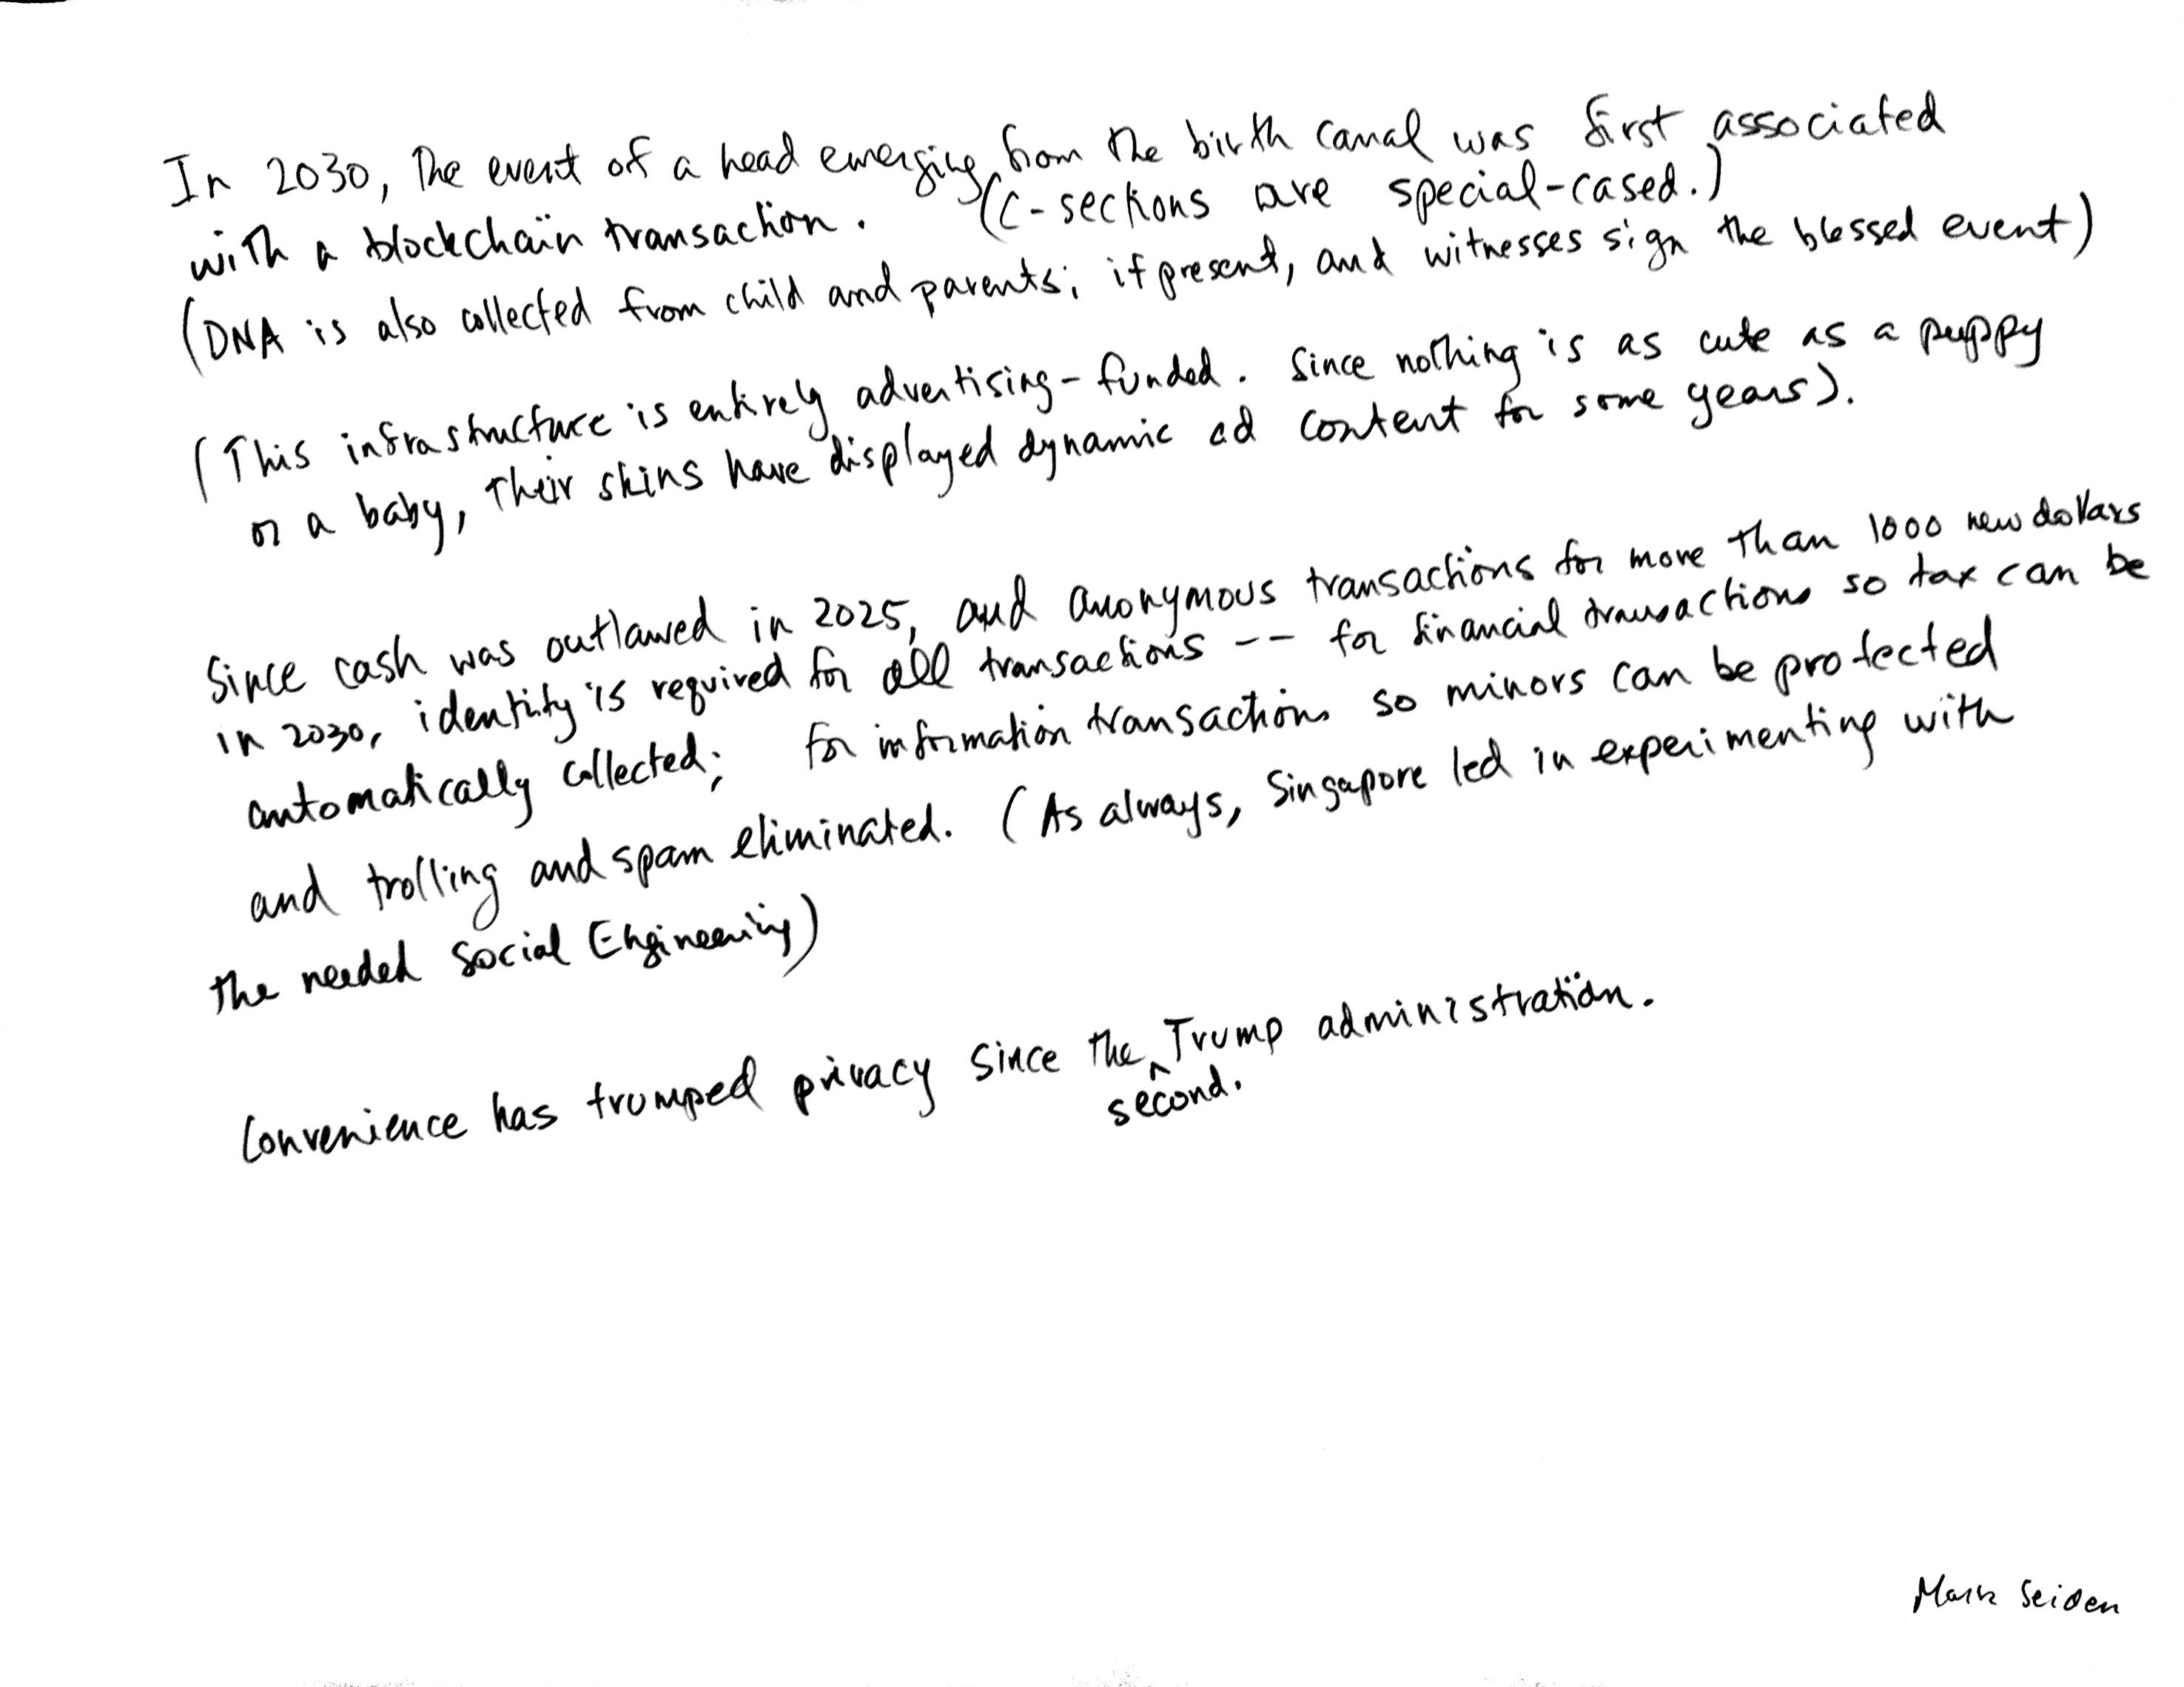 In 2030, The event of a head emerging from the birth canal was first associated
with a blockchain transaction. (C-sections are special-cased.)
(DNA is also collected from child and parents; if present, and witnesses sign the blessed event)
(This infrastructure is entirely advertising-funded. Since nothing is as cute as a puppy
or a baby, their skins have displayed dynamic ad content for some years).
Since cash was outlawed in 2025, and anonymous transactions for more than 1000 new dollars
in 2030, identity is required for all transactions -- for financial transactions so tax can be
automatically collected; for information transactions so minors can be protected
and trolling and spam eliminated. (As always, Singapore led in experimenting with
the needed Social Engineering)
Convenience has trumped privacy since the Trump administration.
second.
Mark Seiden